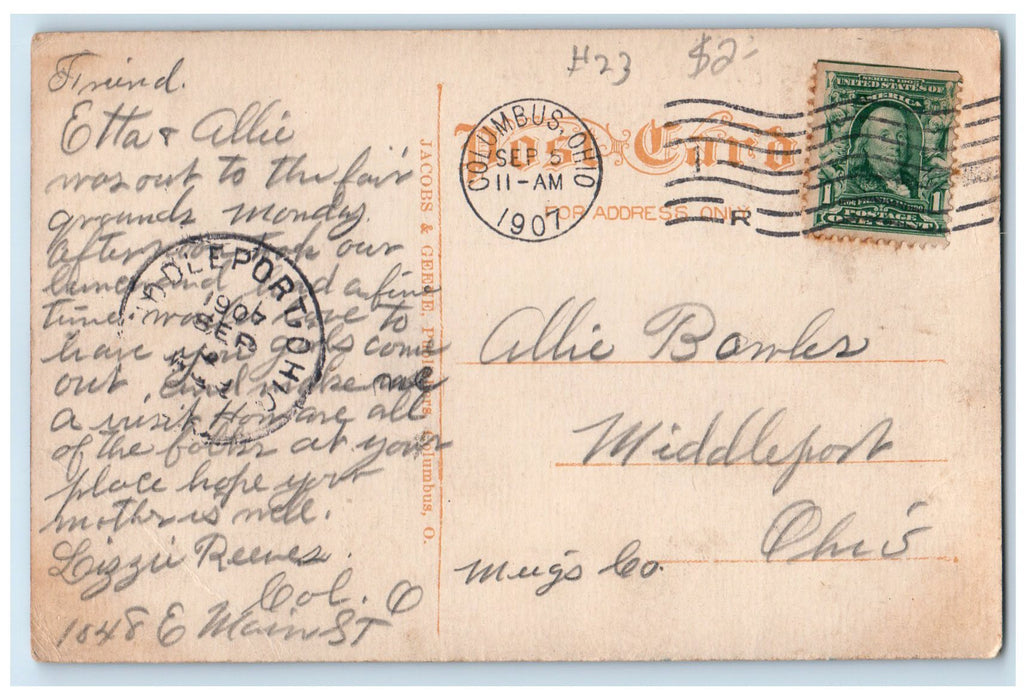 #23 $2-
Friend.
Etta & Allie
was out to the fair
grounds Monday.
afternoon our
and had a fine
time. to
have you girls come
out and make me
a visit How are all
of the folks at your
place hope your
mother is well.
Lizzie Reeves.
Col. O
1048 E Main ST
MIDDLEPORT OHIO
1907
SEP
JACOBS & Publishers, Columbus, O.
COLUMBUS, OHIO
SEP 5
11-AM
1907
Post Card
FOR ADDRESS ONLY
1
R
SERIES 1902
UNITED STATES OF
AMERICA
1 1
POSTAGE
ONE CENT
Allie Bowles
Middleport
Ohio
Meigs Co.